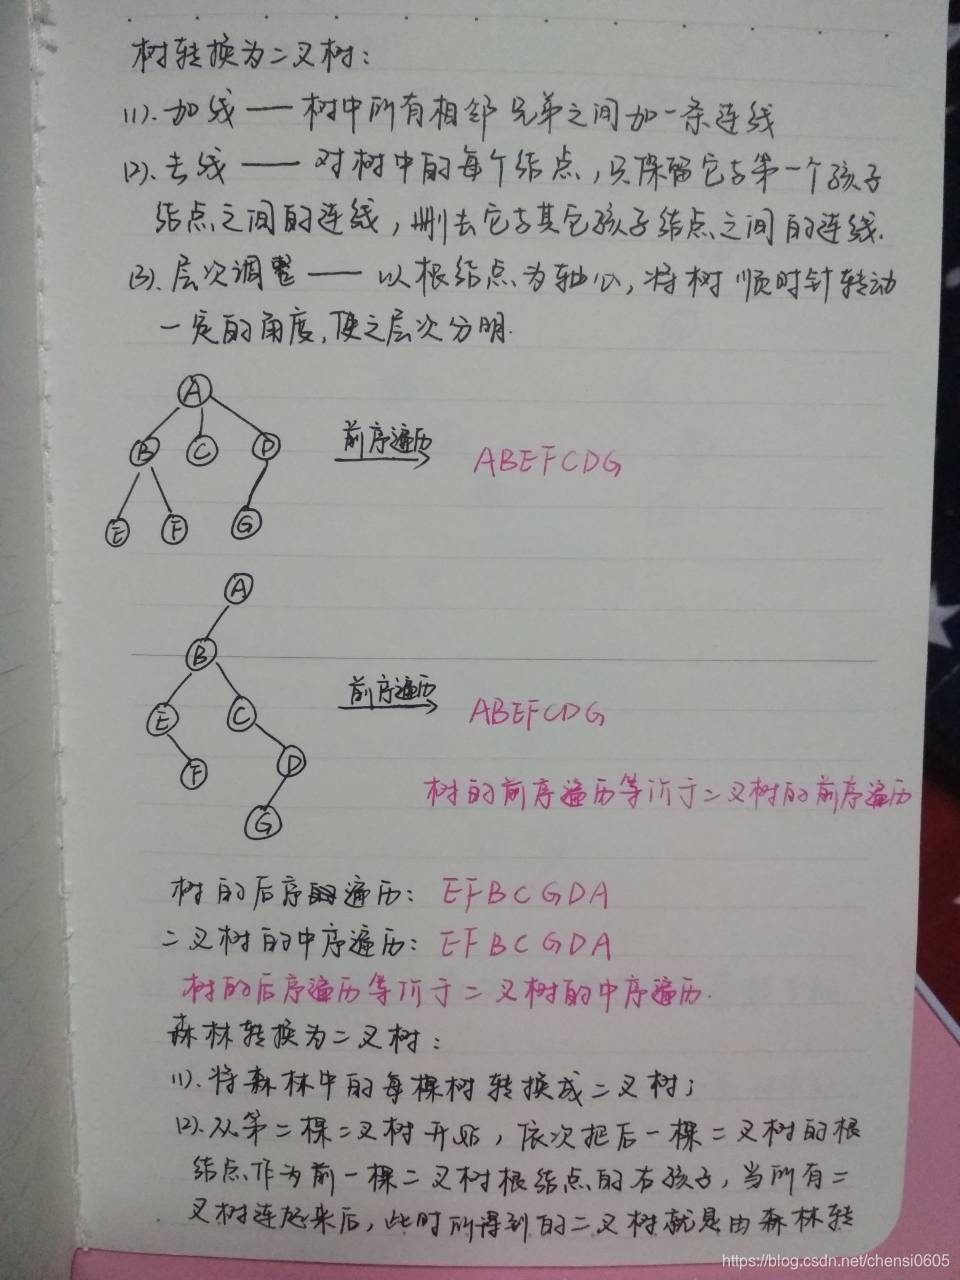 树转换为二叉树：
(1).加线——树中所有相邻兄弟之间加一条连线
(2).去线——对树中的每个结点，只保留它与第一个孩子
结点之间的连线，删去它与其它孩子结点之间的连线.
(3).层次调整——以根结点为轴心，将树顺时针转动
一定的角度，使之层次分明.
A
B C D
前序遍历
ABEFCDG
E F G
A
B
前序遍历
ABEFCDG
E C
F D
树的前序遍历等价于二叉树的前序遍历
G
树的后序遍历：EFBCGDA
二叉树的中序遍历：EFBCGDA
树的后序遍历等价于二叉树的中序遍历.
森林转换为二叉树：
(1).将森林中的每棵树转换成二叉树；
(2).从第二棵二叉树开始，依次把后一棵二叉树的根
结点作为前一棵二叉树根结点的右孩子，当所有二
叉树连起来后，此时所得到的二叉树就是由森林转
https://blog.csdn.net/chensi0605